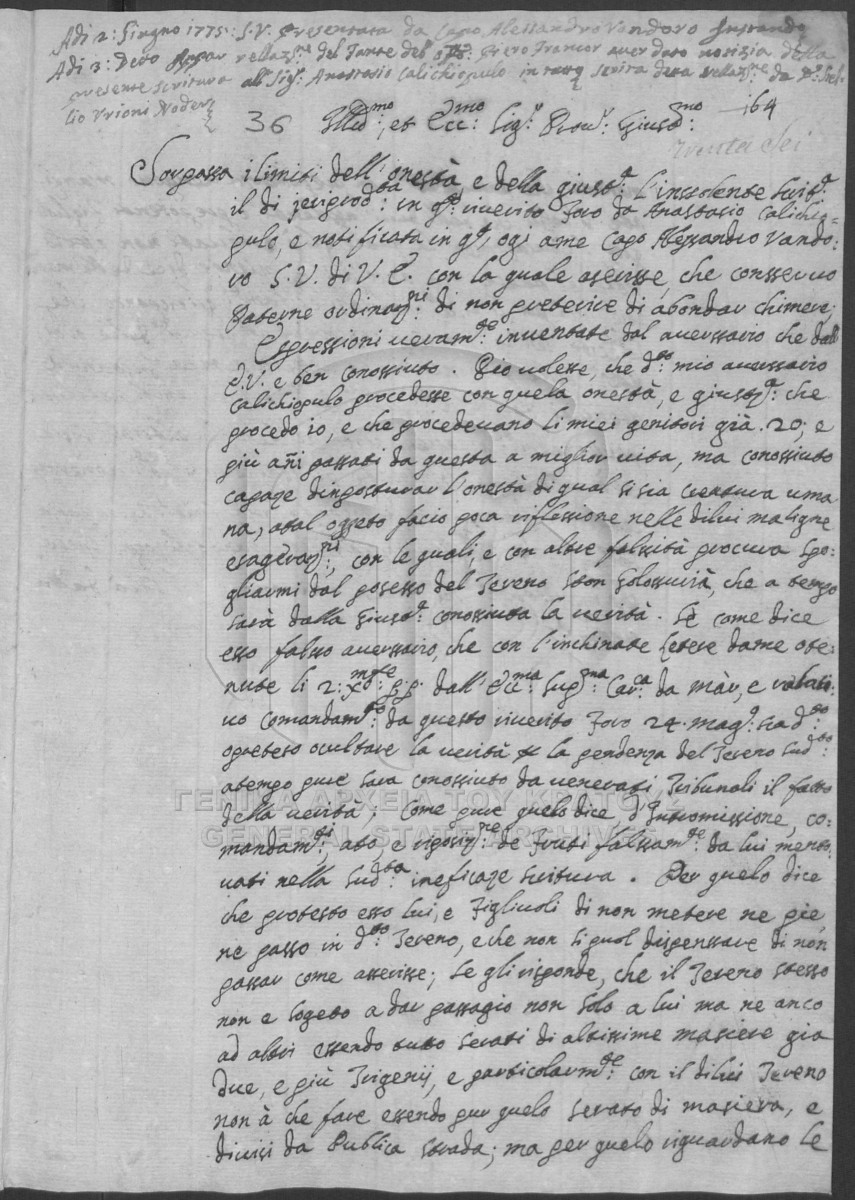 Adi 2: Giugno 1775: S.V. Presentata da Capo Alessandro Vondoro Instando
Adi 3: Detto relaz.ne del Fante deb.o Piero Francor aver dato notizia della
presente scritura all Sig.r Anastasio Calichiopulo in scrita detta rellaz.ne da
lio Vrioni Noder
36 Illmo, et Ecc.mo Sig.r Prov.r Giusd.mo 164
trenta sei
Sorpassa i limiti dell'onestà, e della giust.a l'insolente scrit.a
il di jeri prod.ta in q.to riverito Foro da Anastasio Calichio-
pulo, e notificata in q.t, ogi a me Capo Alessandro Vondo:
ro S.V. di V.E. con la quale aserisse, che consservo
Paterne ordinaz.ni di non preterire di abondar chimere;
Espressioni veram.te inventate dal averssario che dall
E.V. e ben conossiuto. Dio volesse, che d.to mio averssario
Calichiopulo procedesse con quela onestà, e giustiz.a che
procedo io, e che procedevano li miei genitori già .20; e
più añi passati da questa a miglior vita, ma conossiuto
capaze d'inposturar l'onestà di qual si sia creatura uma
na, a tal ogeto facio poca riflessione nelle di lui maligne
esageraz.ni, con le quali, e con altre falssità procura spo-
gliarmi dal posesso del Tereno ston Golossurià, che a tempo
sarà dalla Giust.a conossiuta la verità. Se come dice
esso falsso averssario, che con l'inchinate letere da me ote-
nute li 2: Xb.re p.p. dall'Ecc.ma Sup.ma Car.ca da màr, e
vo comandam.to da questo riverito Foro 24. mag.o sia d.to
o preteso ocultare la verità la pendenza del Tereno sud.to
a tempo pure sarà conossiuto da venerati Tribunali il fatto
della verità; Come pure quelo dice, d'Intromissione, co:
mandam.ti, ato, e de fruti falssam.te da lui mento
vati nella sud.ta ineficaze scritura. Per quelo dice
che protesto esso lui, e Figliuoli di non metere ne piè
ne passo in d.to Tereno, e che non si puol dispenssare di non
passar come asserisse; Se gli risponde, che il Tereno stesso
non e sogeto a dar passagio non solo a lui ma ne anco
ad altri essendo tuto serati di altissime masiere gia
due, e più Trigenij, e particolarm.te con il di lui Tereno
non à che fare essendo pur quelo serato di masiera, e
divisi da Publica strada; ma per quelo riguardano le
ΓΕΝΙΚΑ ΑΡΧΕΙΑ ΤΟΥ ΚΡΑΤΟΥΣ
GENERAL STATE ARCHIVES